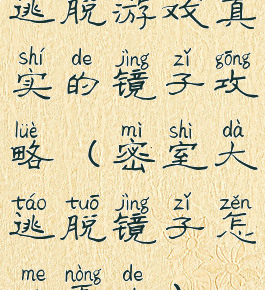 逃脱游戏真
shí de jìng zǐ gōng
实的镜子攻
lüè mì shì dà
略（密室大
táo tuō jìng zǐ zěn
逃脱镜子怎
me nòng de